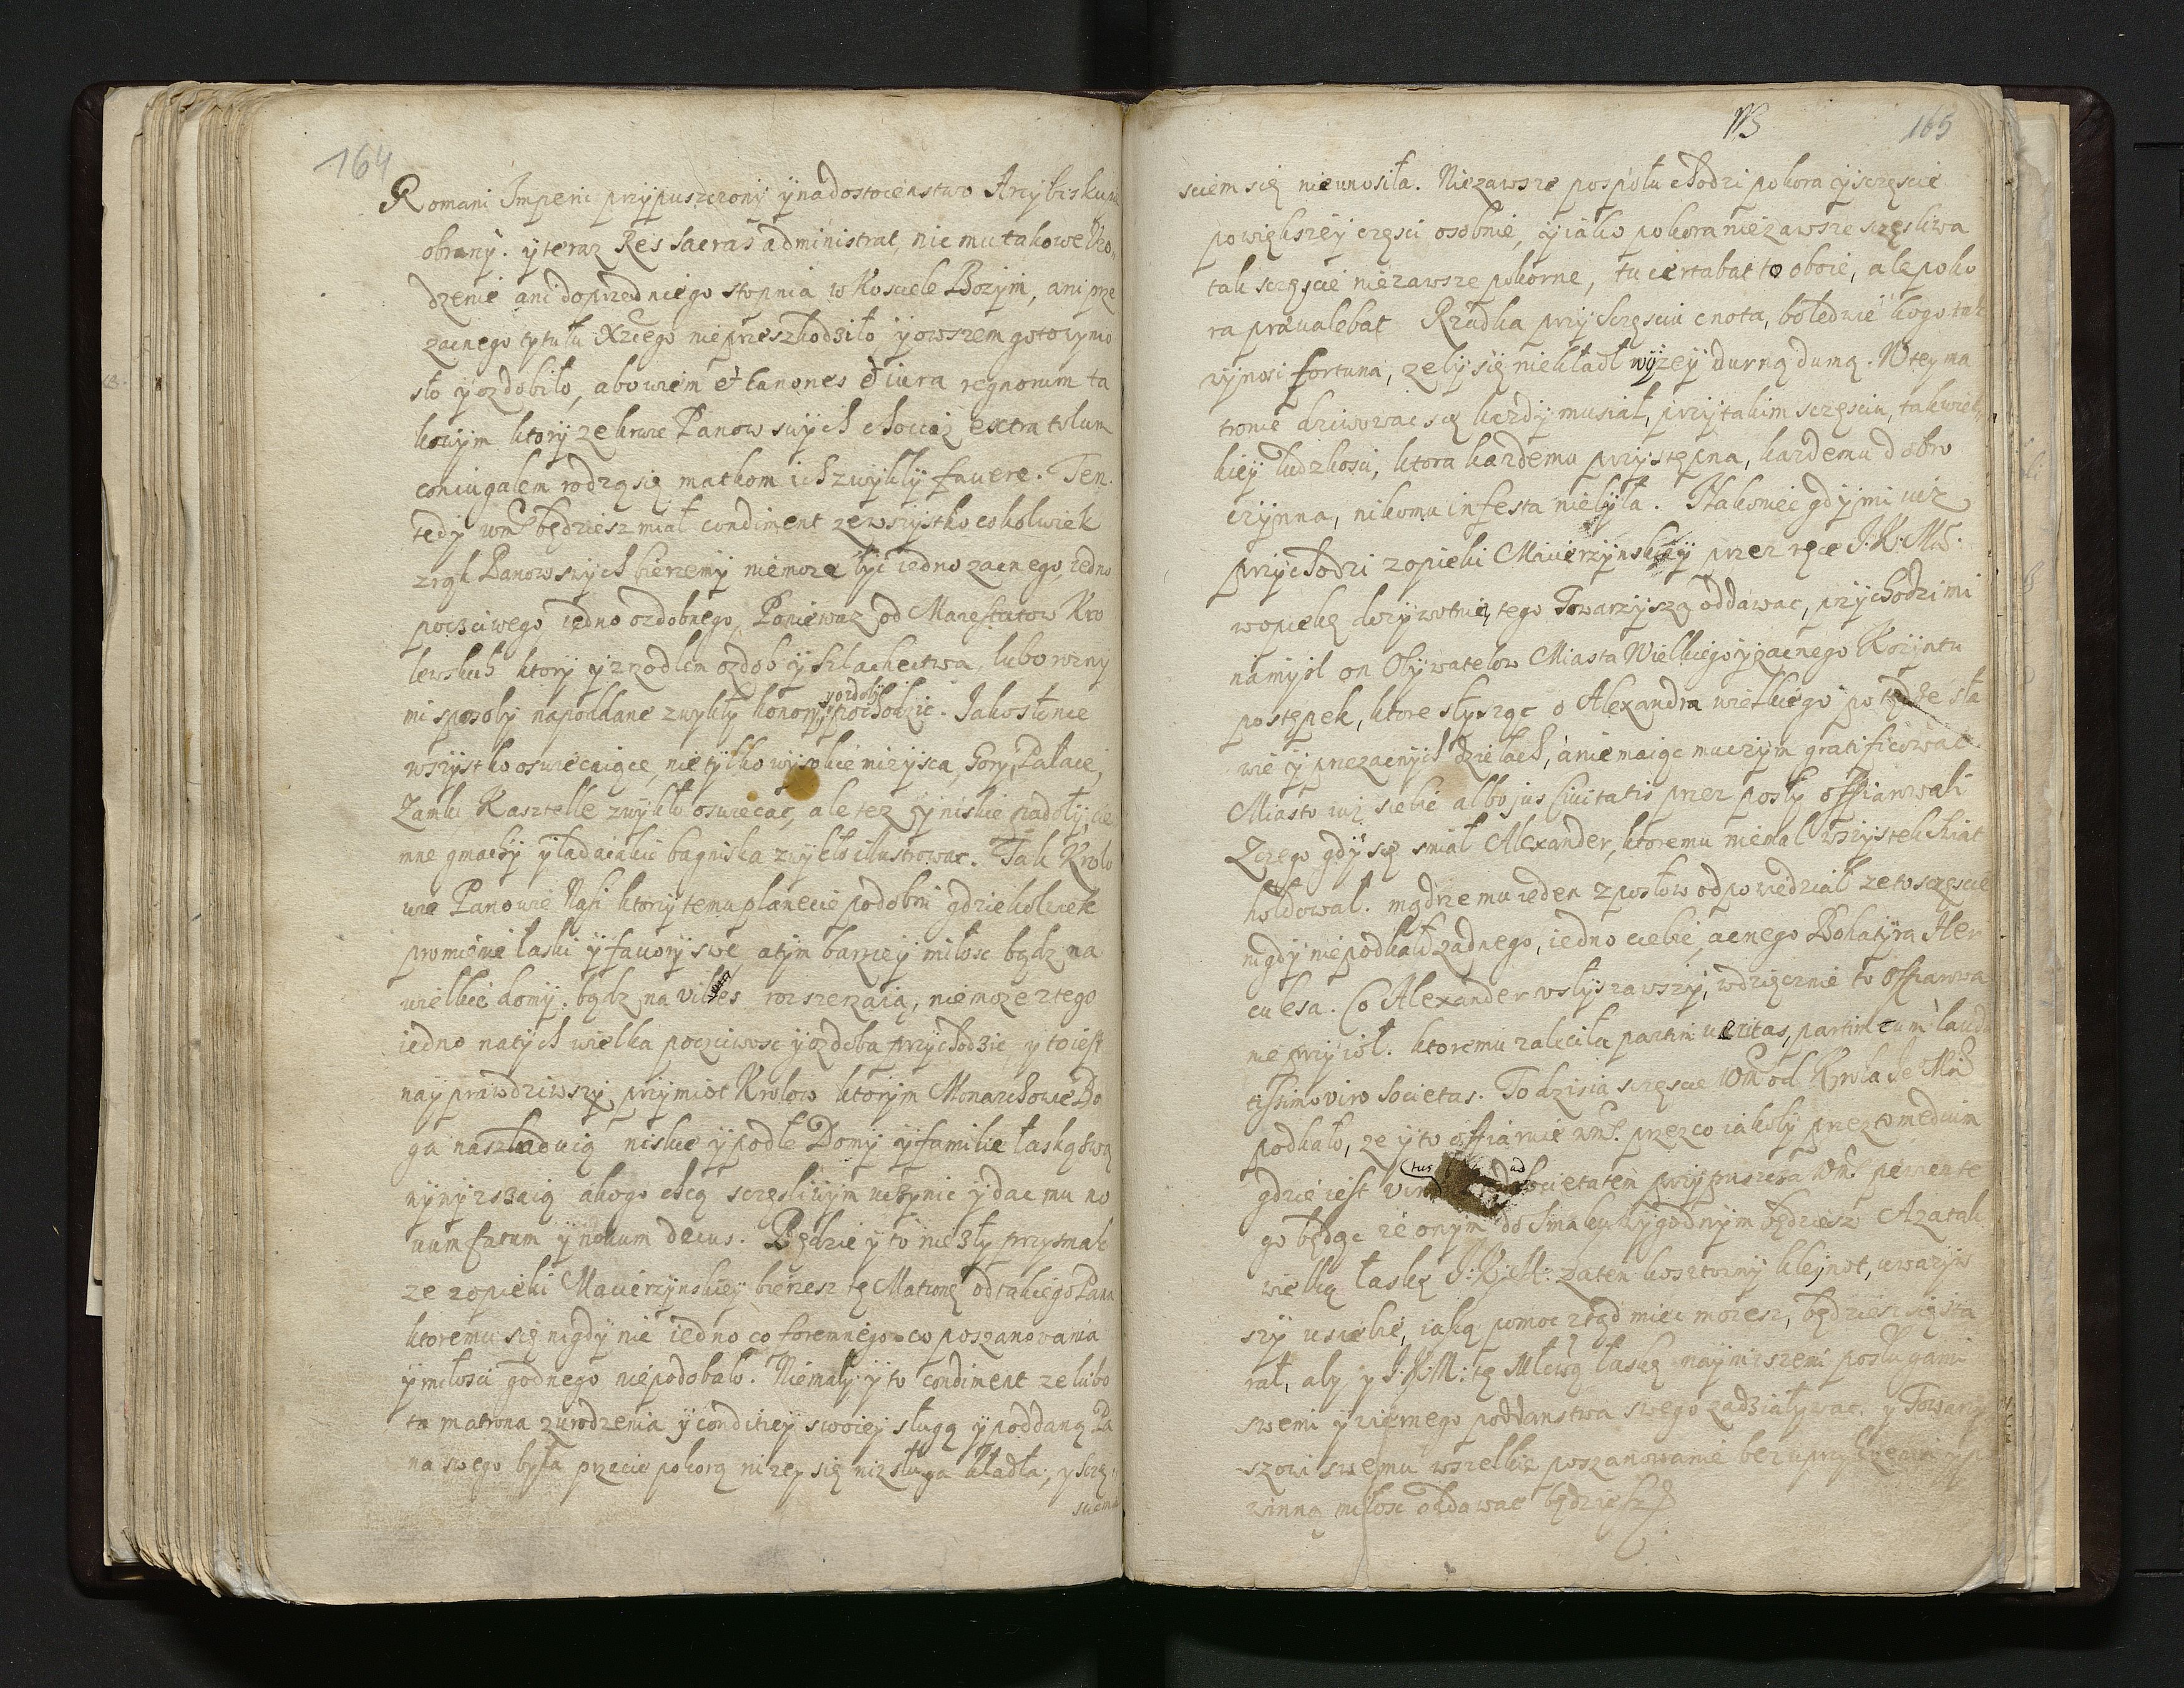 164
Romani Imperii przypuszczony y na dostoienstwo Arcybiskupie
obrany. y teraz Res sacras administrat, nic mu takowe Uro„
dzenie ani do przedniego stopnia w Kosciele Bozym, ani prze
zacnego tytułu Xzcego nie przeszkodziło y owszem gotowy mo
sło y ozdobiło, abowiem et Canones et iura regnorum ta
kowym ktory ze krwie Panow swych chociaz extra tolum
coniugalem rodzą się matkom ich zwykly favere. Ten
tedy wm̃c będziesz miał condiment ze wszystko cokolwiek
z rąk Panow swych bierzemy nie moze byc iedno zacnego, iedno
poczciwego iedno ozdobnego, Poniewaz od Maiestatow Kro
lewskich ktory y zrzodlem ozdob y szlachectwa, lubo wzny
mi sposoby na poddane zwykły honory y ozdoby pochodzic. Jako słonce
wszystko oswiecaiące, nie tylko wysokie mieysca, Gory, Pałace,
Zamki, Kasztelle zwykło oswiecac, ale tez y niskie padoły, cie
mne gmachy y ladaiakie bagniska zwykło illustrowac. Tak Krolo
wie Panowie Nasi ktorzy temu planecie podobni gdziekolwiek
promienie łaski y favory swe a tym barziey miłosc bądz na
wielkie domy. bądz na viliora rozszerzaią, nie moze z tego
iedno na tych wielka poczciwosc y ozdoba przychodzic y to iest
nay prawdziwszy przymiot Krolow ktorym Monarchowie Bo
ga naszladuią niskie y podłe Domy y familie łaską swą
wywyzszaią a kogo chcą sczęsliwym uczynic y dac mu no
vum fatum y novum decus. Będzie y to nie zły przysmak
ze z opieki Macierzynskiey bierzesz tę Matronę od takiego Pana
ktoremu się nigdy nie iedno co foremnego co poszanowania
y miłosci godnego nie podobało. Niemały y to condiment ze lubo
ta matrona z urodzenia y conditiey swoiey sługą y poddaną Pa
na swego była przecie pokorą nizey się niz sługa kładła, y sczę„
sciem
113 165
sciem się nie unosiła. Nie zawsze pospołu chodzi pokora y sczęscie
po większey częsci osobnie, y iako pokora nie zawsze sczęsliwa
tak sczęscie nie zawsze pokorne, tu certabat to oboie, ale poko
ra prævalebat Rzadka przy sczęsciu cnota, bo ledwie kogo tak
wynosi fortuna, zeby się nie kładł wyzey durną dumą. W tey ma
tronie dziwowac się kazdy musiał, przy takim sczęsciu, tak wiel„
kiey ludzkosci, ktora kazdemu przystępna, kazdemu dobro
czynna, nikomu infesta nie była. Nakoniec gdy mi iuz
przychodzi z opieki Macierzynskiey przez ręce J. K. Mc̃i.
w opiekę dozywotnie, tego Towarzysza oddawac, przychodzi mi
na mysl on Obywatelow Miasta Wielkiego y zacnego Koryntu
postępek, ktore słysząc o Alexandra wielkiego potędze sła
wie y przezacnych dzielach, a nie maiąc mu czym gratificowac
Miasto iuz siebie albo jus Civitatis przez posły offiarowali
Z czego gdy się smiał Alexander, ktoremu niemal wszystek swiat
hołdował. mądrze mu ieden z posłow odpowiedział ze to sczęscie
nigdy nie podkało zadnego, iedno ciebie, zacnego Bohatyra Her
culesa. Co Alexander usłyszawszy, wdzięcznie to offiarowa
nie przyiół. ktoremu zaleciła partim veritas, partim cum lauda
tissimo viro societas. To dzisia sczęscie Wm̃ od Krola Je Mc̃i
podkało, ze y to offiaruie wm̃c. przez co iakoby przez to medium
gdzie iest virtus ad societatem przypuszcza Wm̃c pewien te
go będąc ze onym do smaku y godnym będziesz A za tak
wielką łaskę J: K: M: za ten kosztowny kleynot, uwazyw
szy u siebie, iaką pomoc ztąd miec mozesz, będziesz się sta
rał, aby y J. K M: tę Mł̃ciwą łaskę naynizszemi posługami
swemi y wiernego poddanstwa swego zadziaływac. y Towarzy
szowi swemu wszelkie poszanowanie bez uprzykrzenia y po
winną miłosc oddawac będziesz